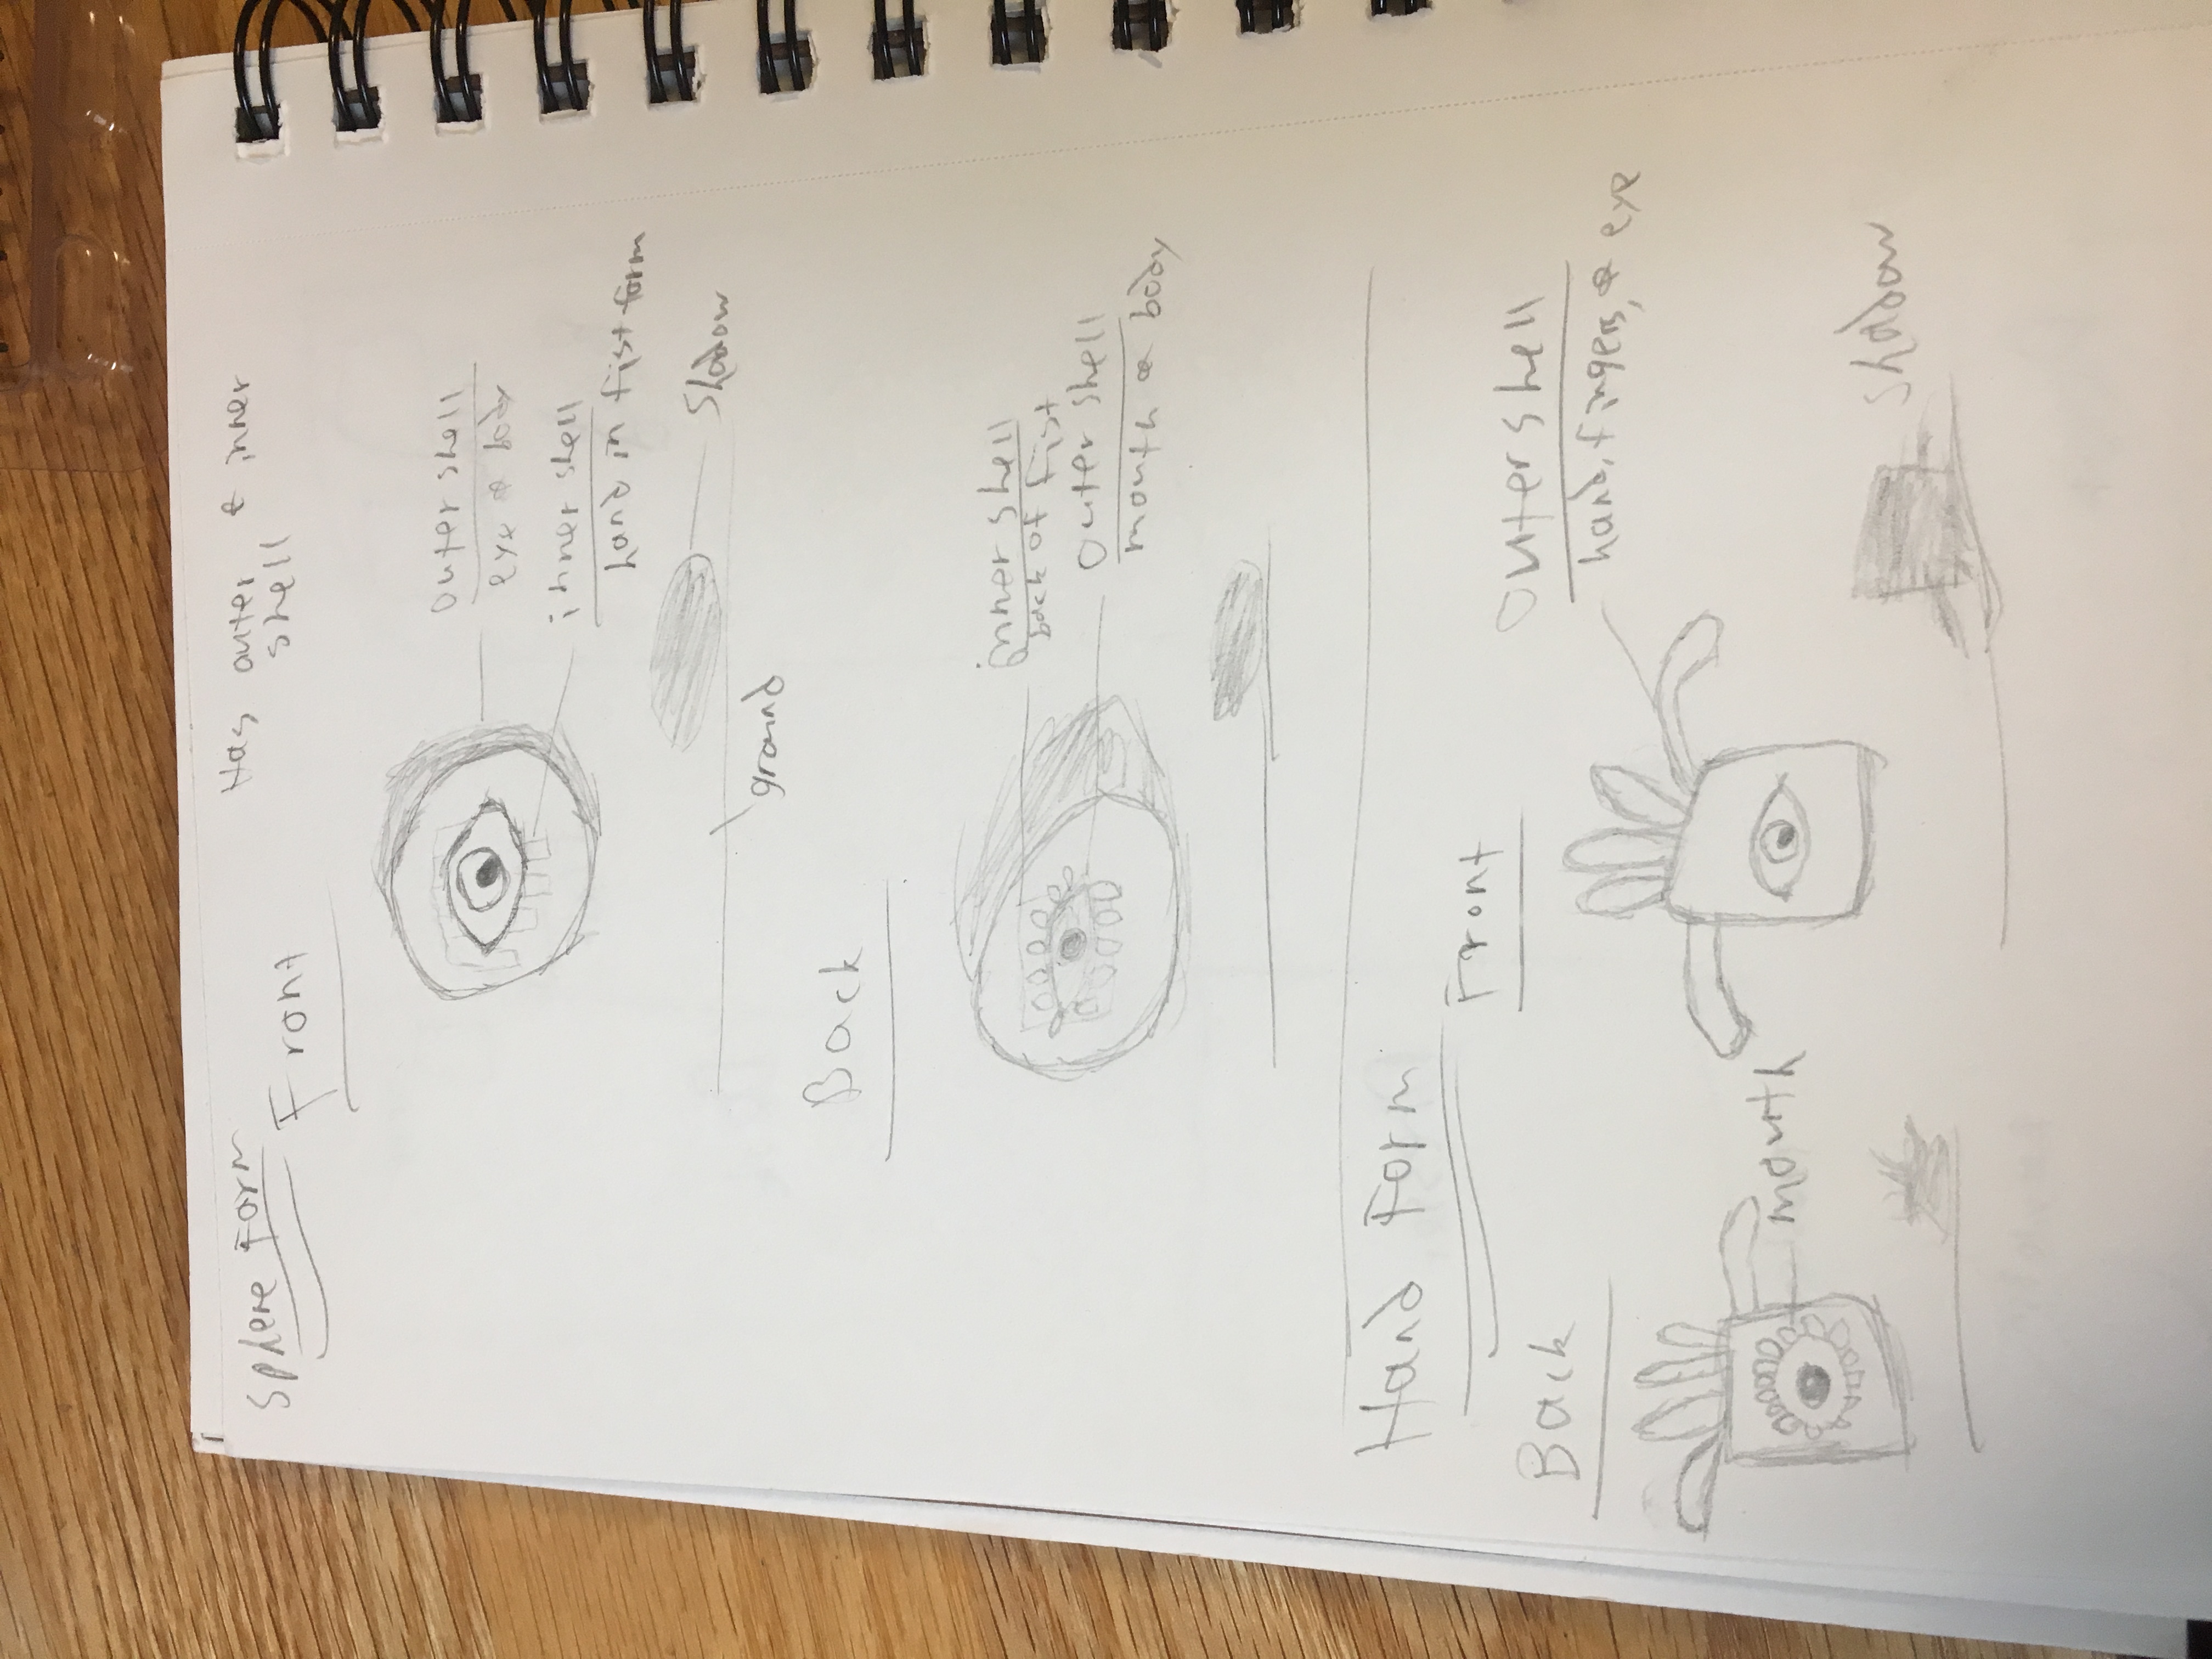 Sphere Form
Front
Has outer & inner
shell
outer shell
eye & body
inner shell
hand in fist form
Shadow
ground
Back
inner shell
back of fist
outer shell
mouth & body
Hand Form
Front
Back
outer shell
hand, fingers, & eye
mouth
shadow